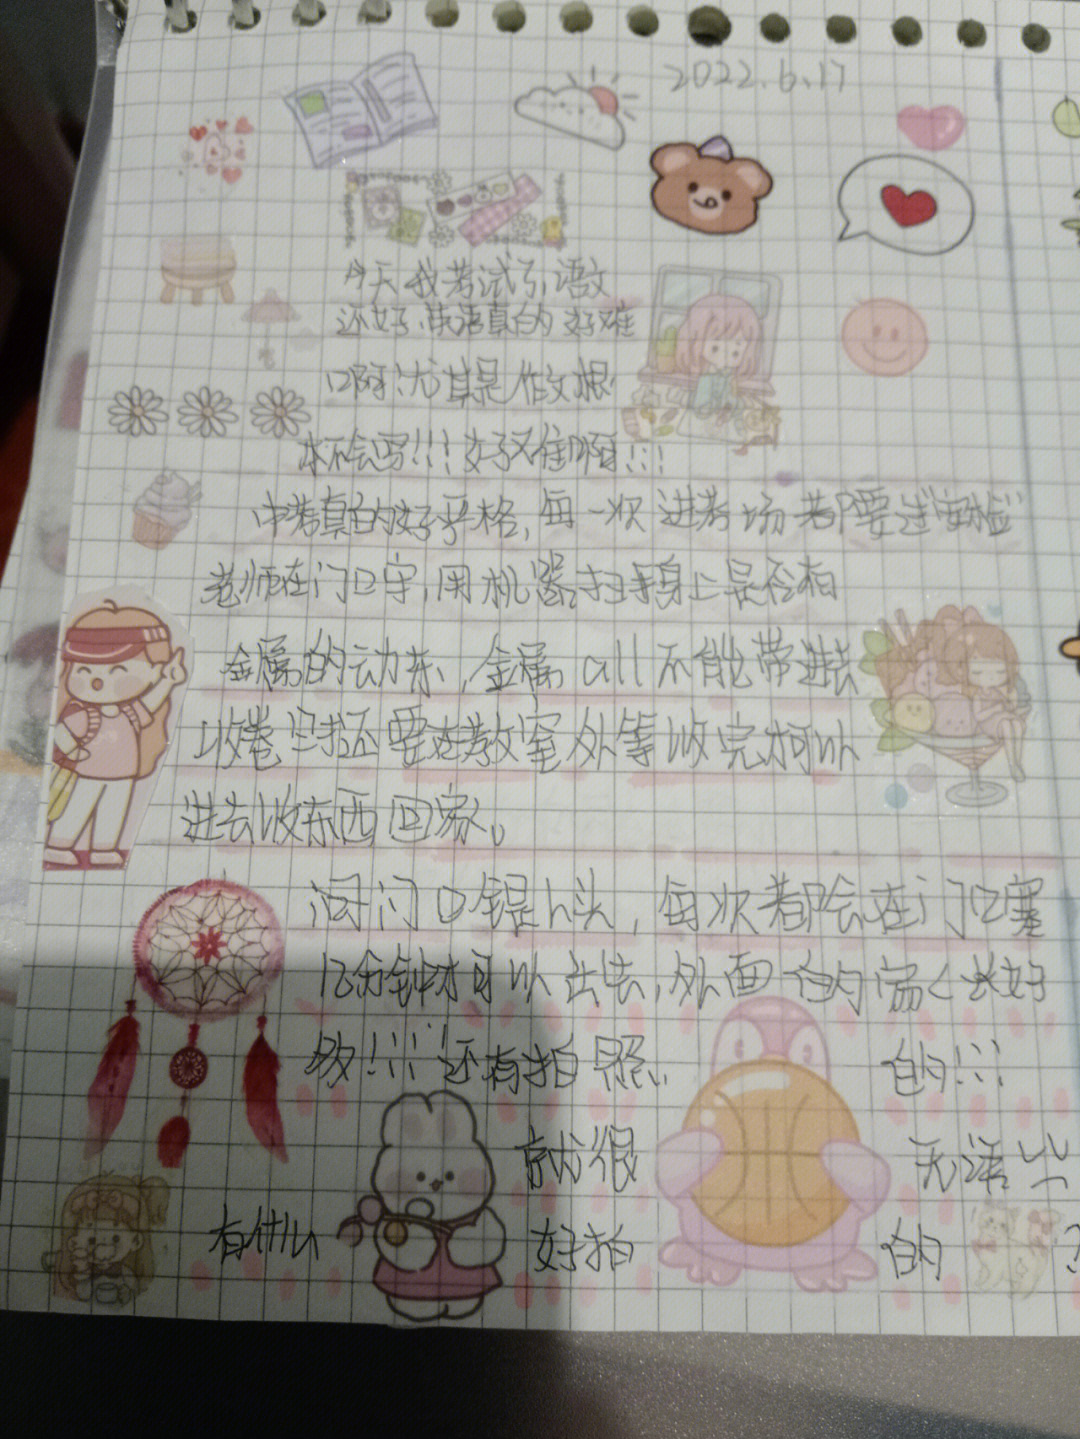 2022.6.17
今天我考试了,语文
还好,英语真的好难
啊!尤其是作文根
本不会写!!!好难啊!!!
中考真的好严格,每一次进考场都要进安检
老师在门口守,用机器扫手身上是否有
金属的东东,金属all不能带进去
收卷完还要在教室外等收完才可以
进去收东西回家。
门口很多人头,每次都会在门口塞
几分钟才可以出去,外面的家长好
多!!!还有拍照 的!!!
就很 无语
有什么 好拍 的 ?